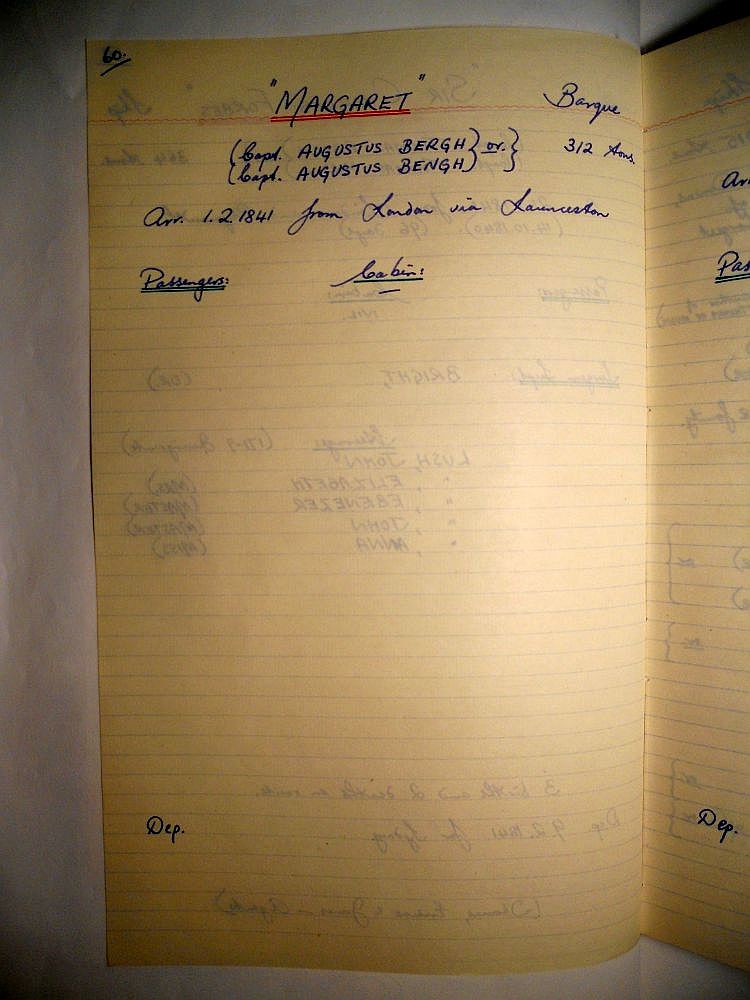 60.
"MARGARET" Barque
(Capt. AUGUSTUS BERGH) or. } 312 tons.
(Capt. AUGUSTUS BENGH)
Arr. 1.2.1841 from London via Launceston
Passengers: Cabin:
Dep.
Arr
Pas
Dep.